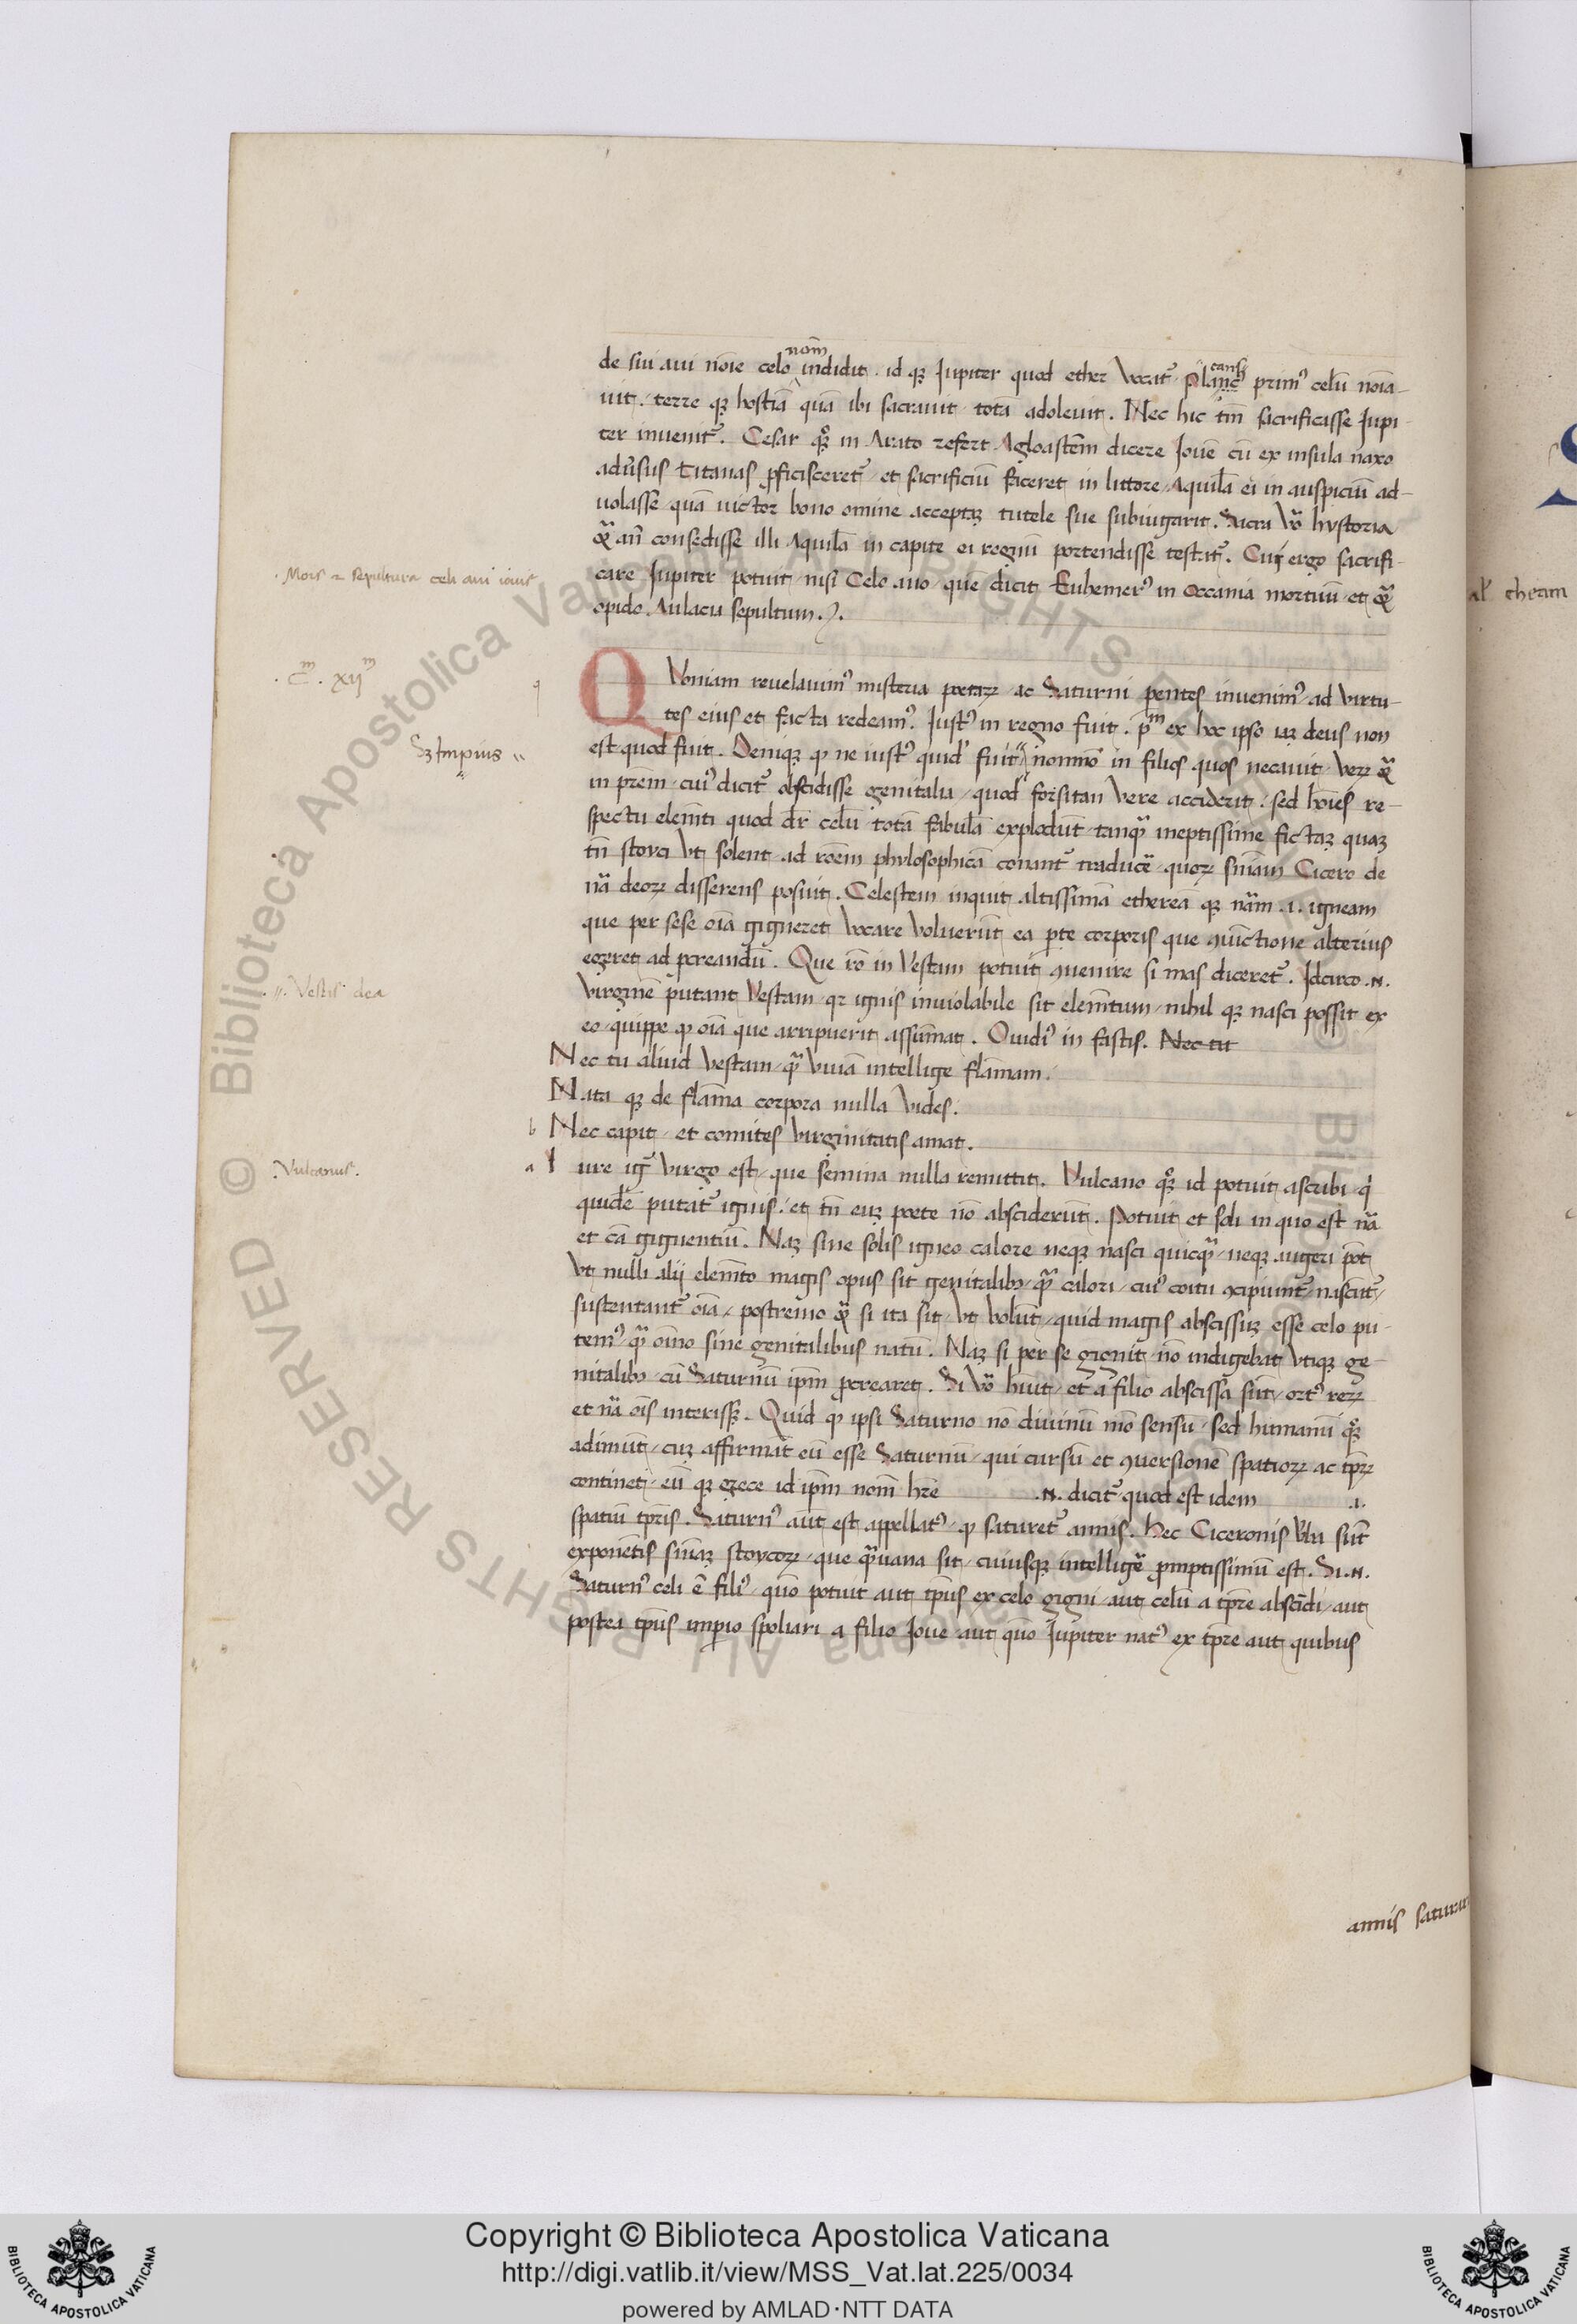 de sui aui nōie celo nom̄ indidit. id qꝫ Iupiter quod ether vocat᷑ plancꝰ cansꝫ primꝰ celū noīa-
uit. terre qꝫ hostiā quā ibi sacrauit totā adoleuit. Nec hic tm̄ sacrificasse Iupi-
ter inuenit᷑. Cesar qꝫ in Arato refert Agloastem̄ dicere Iouē cū ex insula naxo
adūsus Titanas ꝓficisceret᷑ et sacrificiū faceret in littore Aquilā ei in auspiciū ad-
uolasse quā uictor bono omine acceptaꝫ tutele sue subiugarit. Sacra vō hystoria
ꝙ̄ an̄ consedisse illi Aquilā in capite ei regnū portendisse testat᷑. Cui ergo sacrifi-
care Iupiter potuit nisi Celo auo quē dicit Euhemerꝰ in occania mortuū et ꝙ̄
opido Aulacu sepultum.
.Mors ⁊ sepultura celi aui iouis
.Cᵐ. xijᵐ
QVoniam reuelauimꝰ misteria poetaꝝ ac Saturni pentes inuenimꝰ ad virtu-
tes eius et facta redeamꝰ. Iustꝰ in regno fuit. pᵐ ex hoc ipso iaꝫ deus non
est quod fuit. Deniqꝫ ꝙ ne iustꝰ quid' fuit nonmō in filios quos necauit veꝝ ꝙ̄
Sꝫ Impius
in prēm cuiꝰ dicit᷑ abscidisse genitalia quod forsitan vere acciderit. sed hoīes re-
spectu elemn̄ti quod dr̄ celū totā fabulā explodūt tanꝙ̄ ineptissime fictaꝫ quaꝫ
tn̄ stoyci vt solent ad rōem phylosophicā conant᷑ traducē quoꝝ sn̄iam Cicero de
nā deoꝝ disserens posuit. Celestem inquit altissimā ethereā qꝫ nām .i. igneam
que per sese oīa gigneret vocare voluerūt ea parte corporis que ꝯiūctione alterius
egeret ad pcreandū. Que rō in Vestam potuit ꝯuenire si mas diceret᷑. Idcirco .N.
Virginē putant Vestam qꝛ ignis inuiolabile sit elemn̄tum nihil qꝫ nasci possit ex
.Vestis dea
eo quippe ꝙ oīa que arripuerit assūmat. Ouidiꝰ in fastis. Nec tu
Nec tu aliud Vestam ꝙ̄ viuā intellige flāmam.
Nata qꝫ de flāma corpora nulla vides.
b Nec capit et comites virginitatis amat.
a Iure igr̄ virgo est que semina nulla remittit. Vulcano qꝫ id potuit ascribi qi
.Vulcanus.
quidē putat᷑ ignis. et tn̄ euꝫ poete nō absciderūt. Potuit et soli in quo est nā
et cā gignentiū. Naꝫ sine solis igneo calore neqꝫ nasci quicꝙ̄ neqꝫ augeri pōt
vt nulli alij elemn̄to magis opus sit genitalibꝫ ꝙ̄ calori cuiꝰ coitu ꝯcipiunt᷑ nascūt᷑
sustentant᷑ oīa postremo ꝙ̄ si ita sit vt volūt quid magis abscissuꝫ esse celo pu-
temꝰ ꝙ̄ oīno sine genitalibus natū. Naꝫ si per se gignit nō indigebat vtiqꝫ ge-
nitalibꝫ cū Saturnū ipm̄ ꝓcrearet. Si vō habuit et a filio abscissa sūt ortꝰ reꝝ
et nā oīs interissꝫ. Quid ꝙ ipsi Saturno nō diuinū mō sensū sed humanū qꝫ
adimūt cuꝫ affirmāt eū esse Saturnū qui cursū et ꝯuersionē spatioꝝ ac tpr̄ꝝ
contineꝫ eū qꝫ grece id ipm̄ nom̄ hr̄e .N. dicit᷑ quod est idem .i.
spatiū tpr̄is. Saturnꝰ aūt est appellatꝰ ꝙ saturet᷑ annis. Hec Ciceronis vba sūt
exponētis sn̄iaꝫ stoycoꝝ que ꝙ̄ uana sit cuiusqꝫ intelligē ꝓmptissimū est. Si .N.
Saturnꝰ celi ē filiꝰ quō potuit aut tp̄us ex celo gigni aut celū a tpr̄e abscidi aut
postea tp̄us imperio spoliari a filio Ioue aut quō Iupiter natꝰ ex tpr̄e aut quibus
annis saturar
al' etheram
Copyright © Biblioteca Apostolica Vaticana
http://digi.vatlib.it/view/MSS_Vat.lat.225/0034
powered by AMLAD·NTT DATA
BIBLIOTECA APOSTOLICA VATICANA
BIBLIOTECA APOSTOLICA VATICANA